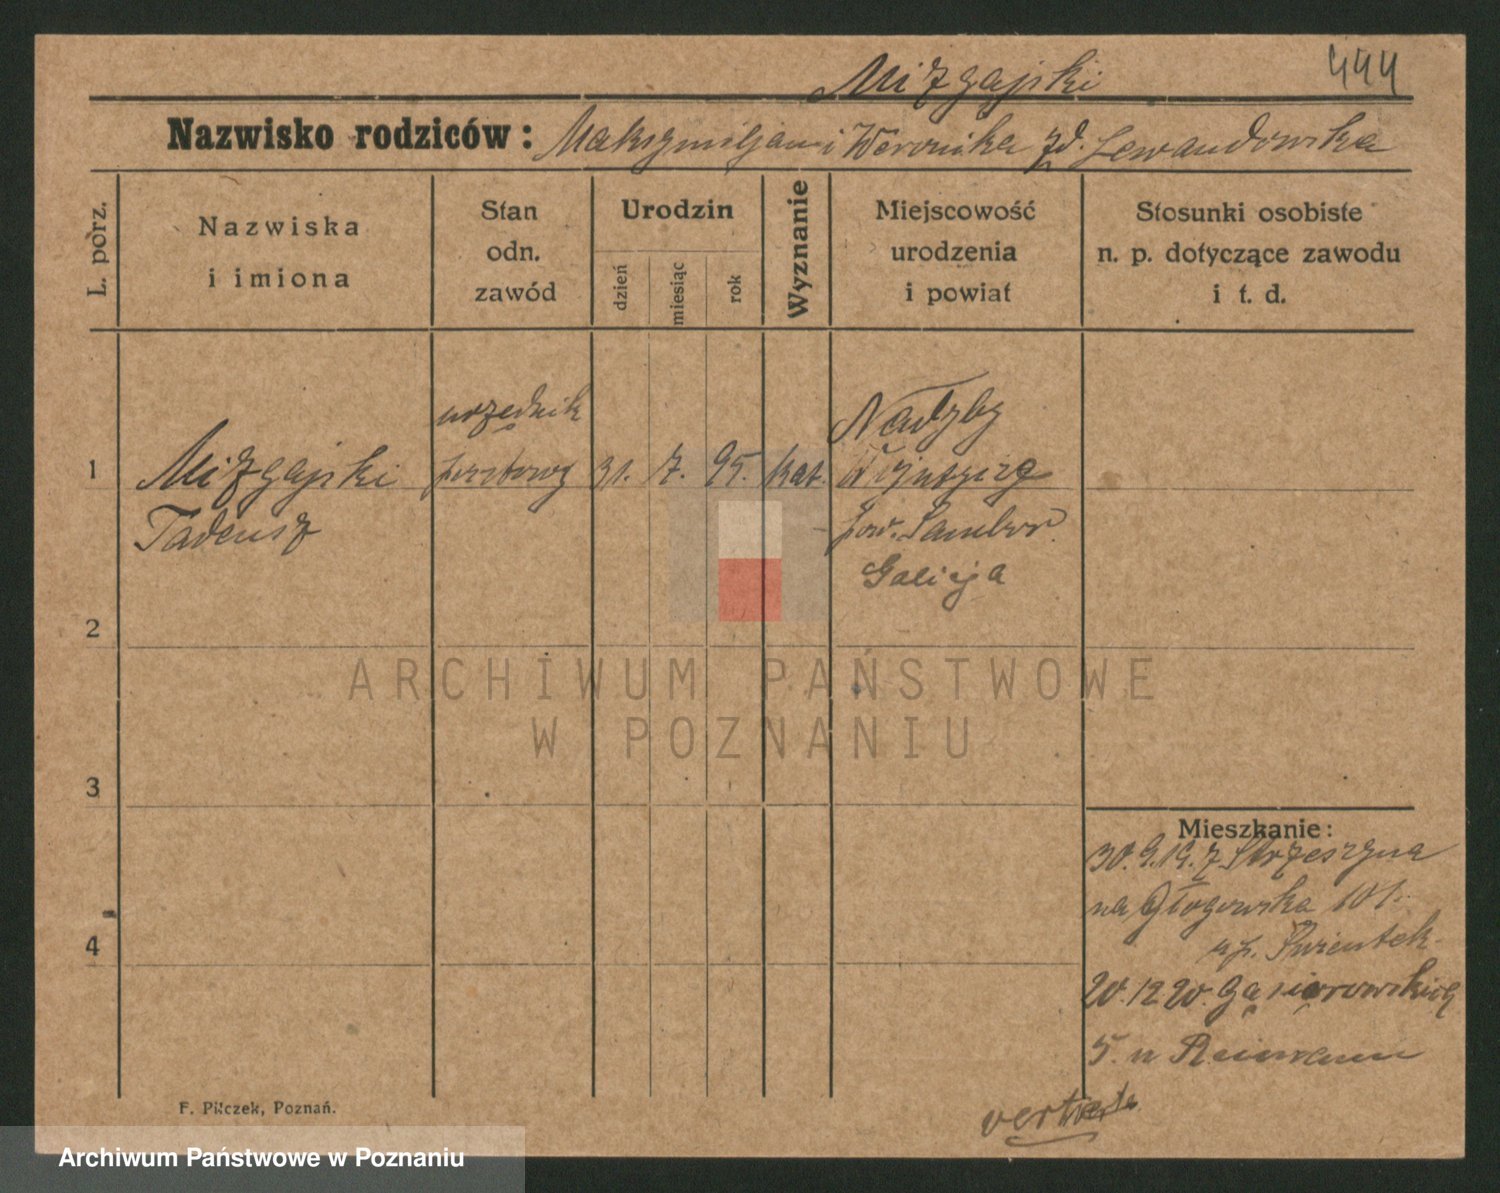 Mizgajski 444
Nazwisko rodziców: Maksymiljan i Weronika zd. Lewandowska
L. porz.
Nazwiska
i imiona
Stan
odn.
zawód
Urodzin
dzień
miesiąc
rok
Wyznanie
Miejscowość
urodzenia
i powiat
Stosunki osobiste
n. p. dotyczące zawodu
i t. d.
1
Mizgajski
Tadeusz
urzędnik
pocztowy
31. 7. 95. kat.
Nadyby
pow. Sambor
Galicja
2
3
4
Mieszkanie:
30.9.19. z Strzeszyna
na Głogowska 101.
20.12.20. Gąsiorowskich
5. u
verte
F. Pilczek, Poznań.
ARCHIWUM PAŃSTWOWE
W POZNANIU
Archiwum Państwowe w Poznaniu